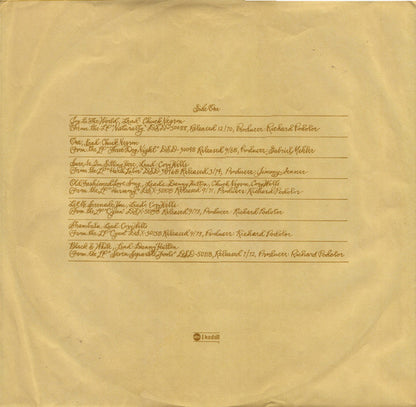 Side One
Joy To The World, Lead: Chuck Negron
(From the LP "Naturally" DSD-50088, Released 12/70, Producer: Richard Podolor
One, Lead: Chuck Negron
(From the LP "Three Dog Night" DSD-50048 Released 9/68, Producer: Gabriel Mekler
Sure As I'm Sitting Here, Lead: Cory Wells
(From the LP "Hard Labor" Released 3/74, Producer: Jimmy Ienner
Old Fashioned Love Song, Leads: Danny Hutton, Chuck Negron, Cory Wells
(From the LP "Harmony" Released 9/71, Producer: Richard Podolor
Let Me Serenade You, Lead: Cory Wells
(From the LP "Cyan" Released 9/73, Producer: Richard Podolor
Shambala, Lead: Cory Wells
(From the LP "Cyan" Released 9/73, Producer: Richard Podolor
Black & White, Lead: Danny Hutton
(From the LP "Seven Separate Fools" Released 7/72, Producer: Richard Podolor
abc Dunhill